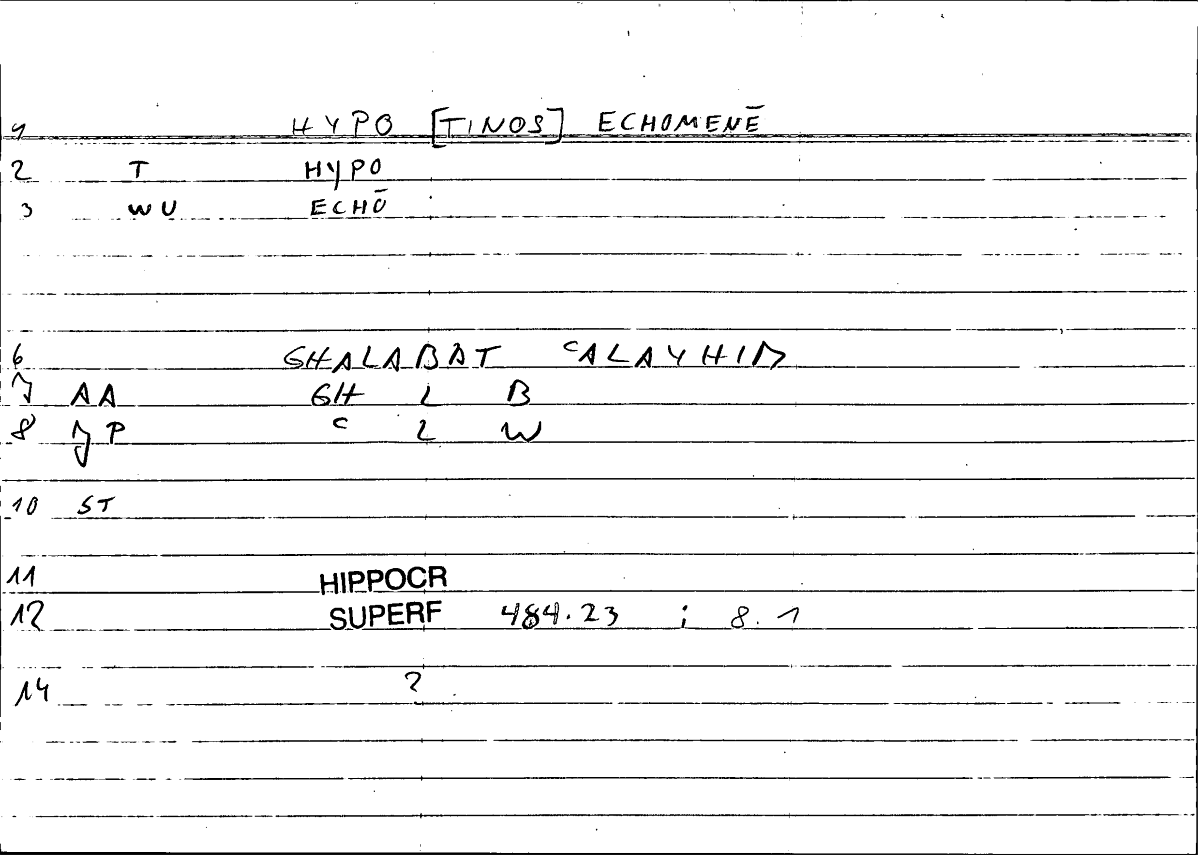 1 HYPO [TINOS] ECHOMENĒ
2 T HYPO
3 WU ECHŌ
6 GHALABAT ʿALAYHIM
7 AA GH L B
8 JP ʿ L W
10 ST
11 HIPPOCR
12 SUPERF 484.23 ; 8.1
14 2